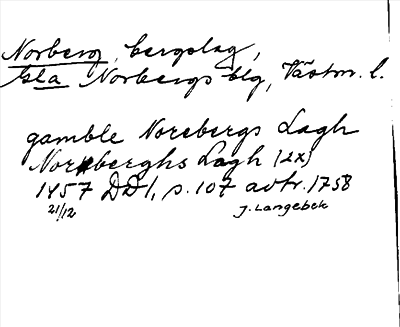 Norberg, bergslag,
Gla Norbergs blg, Västm. l.
gamble Norebergs Lagh
Norrberghs Lagh (2x)
1457 DD1, s. 107 avtr. 1758
21/12 J. Langebek